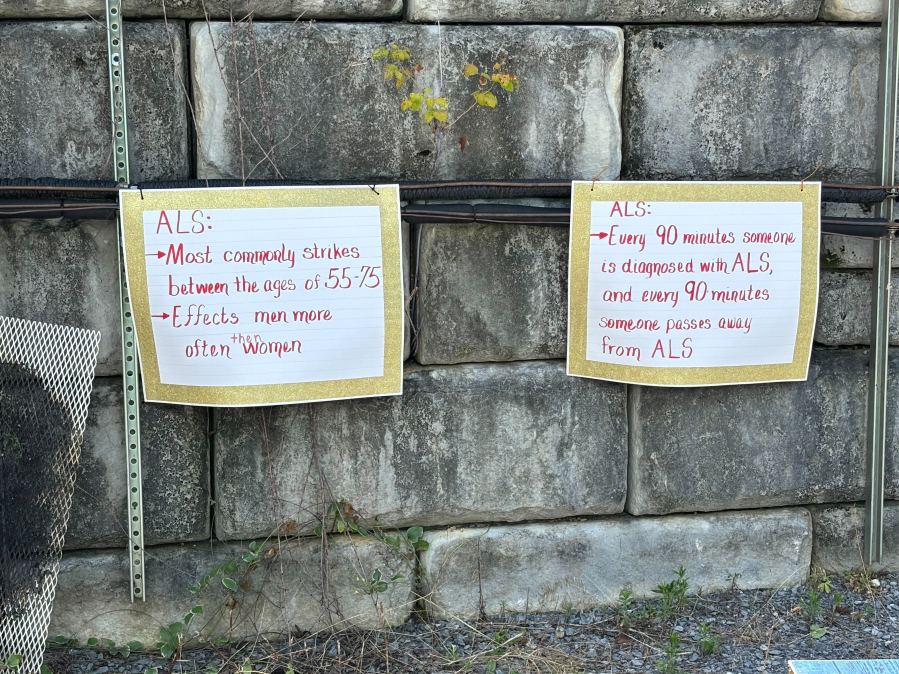 ALS:
→Most commonly strikes
between the ages of 55-75
→Effects men more
often then women
ALS:
→Every 90 minutes someone
is diagnosed with ALS,
and every 90 minutes
someone passes away
from ALS